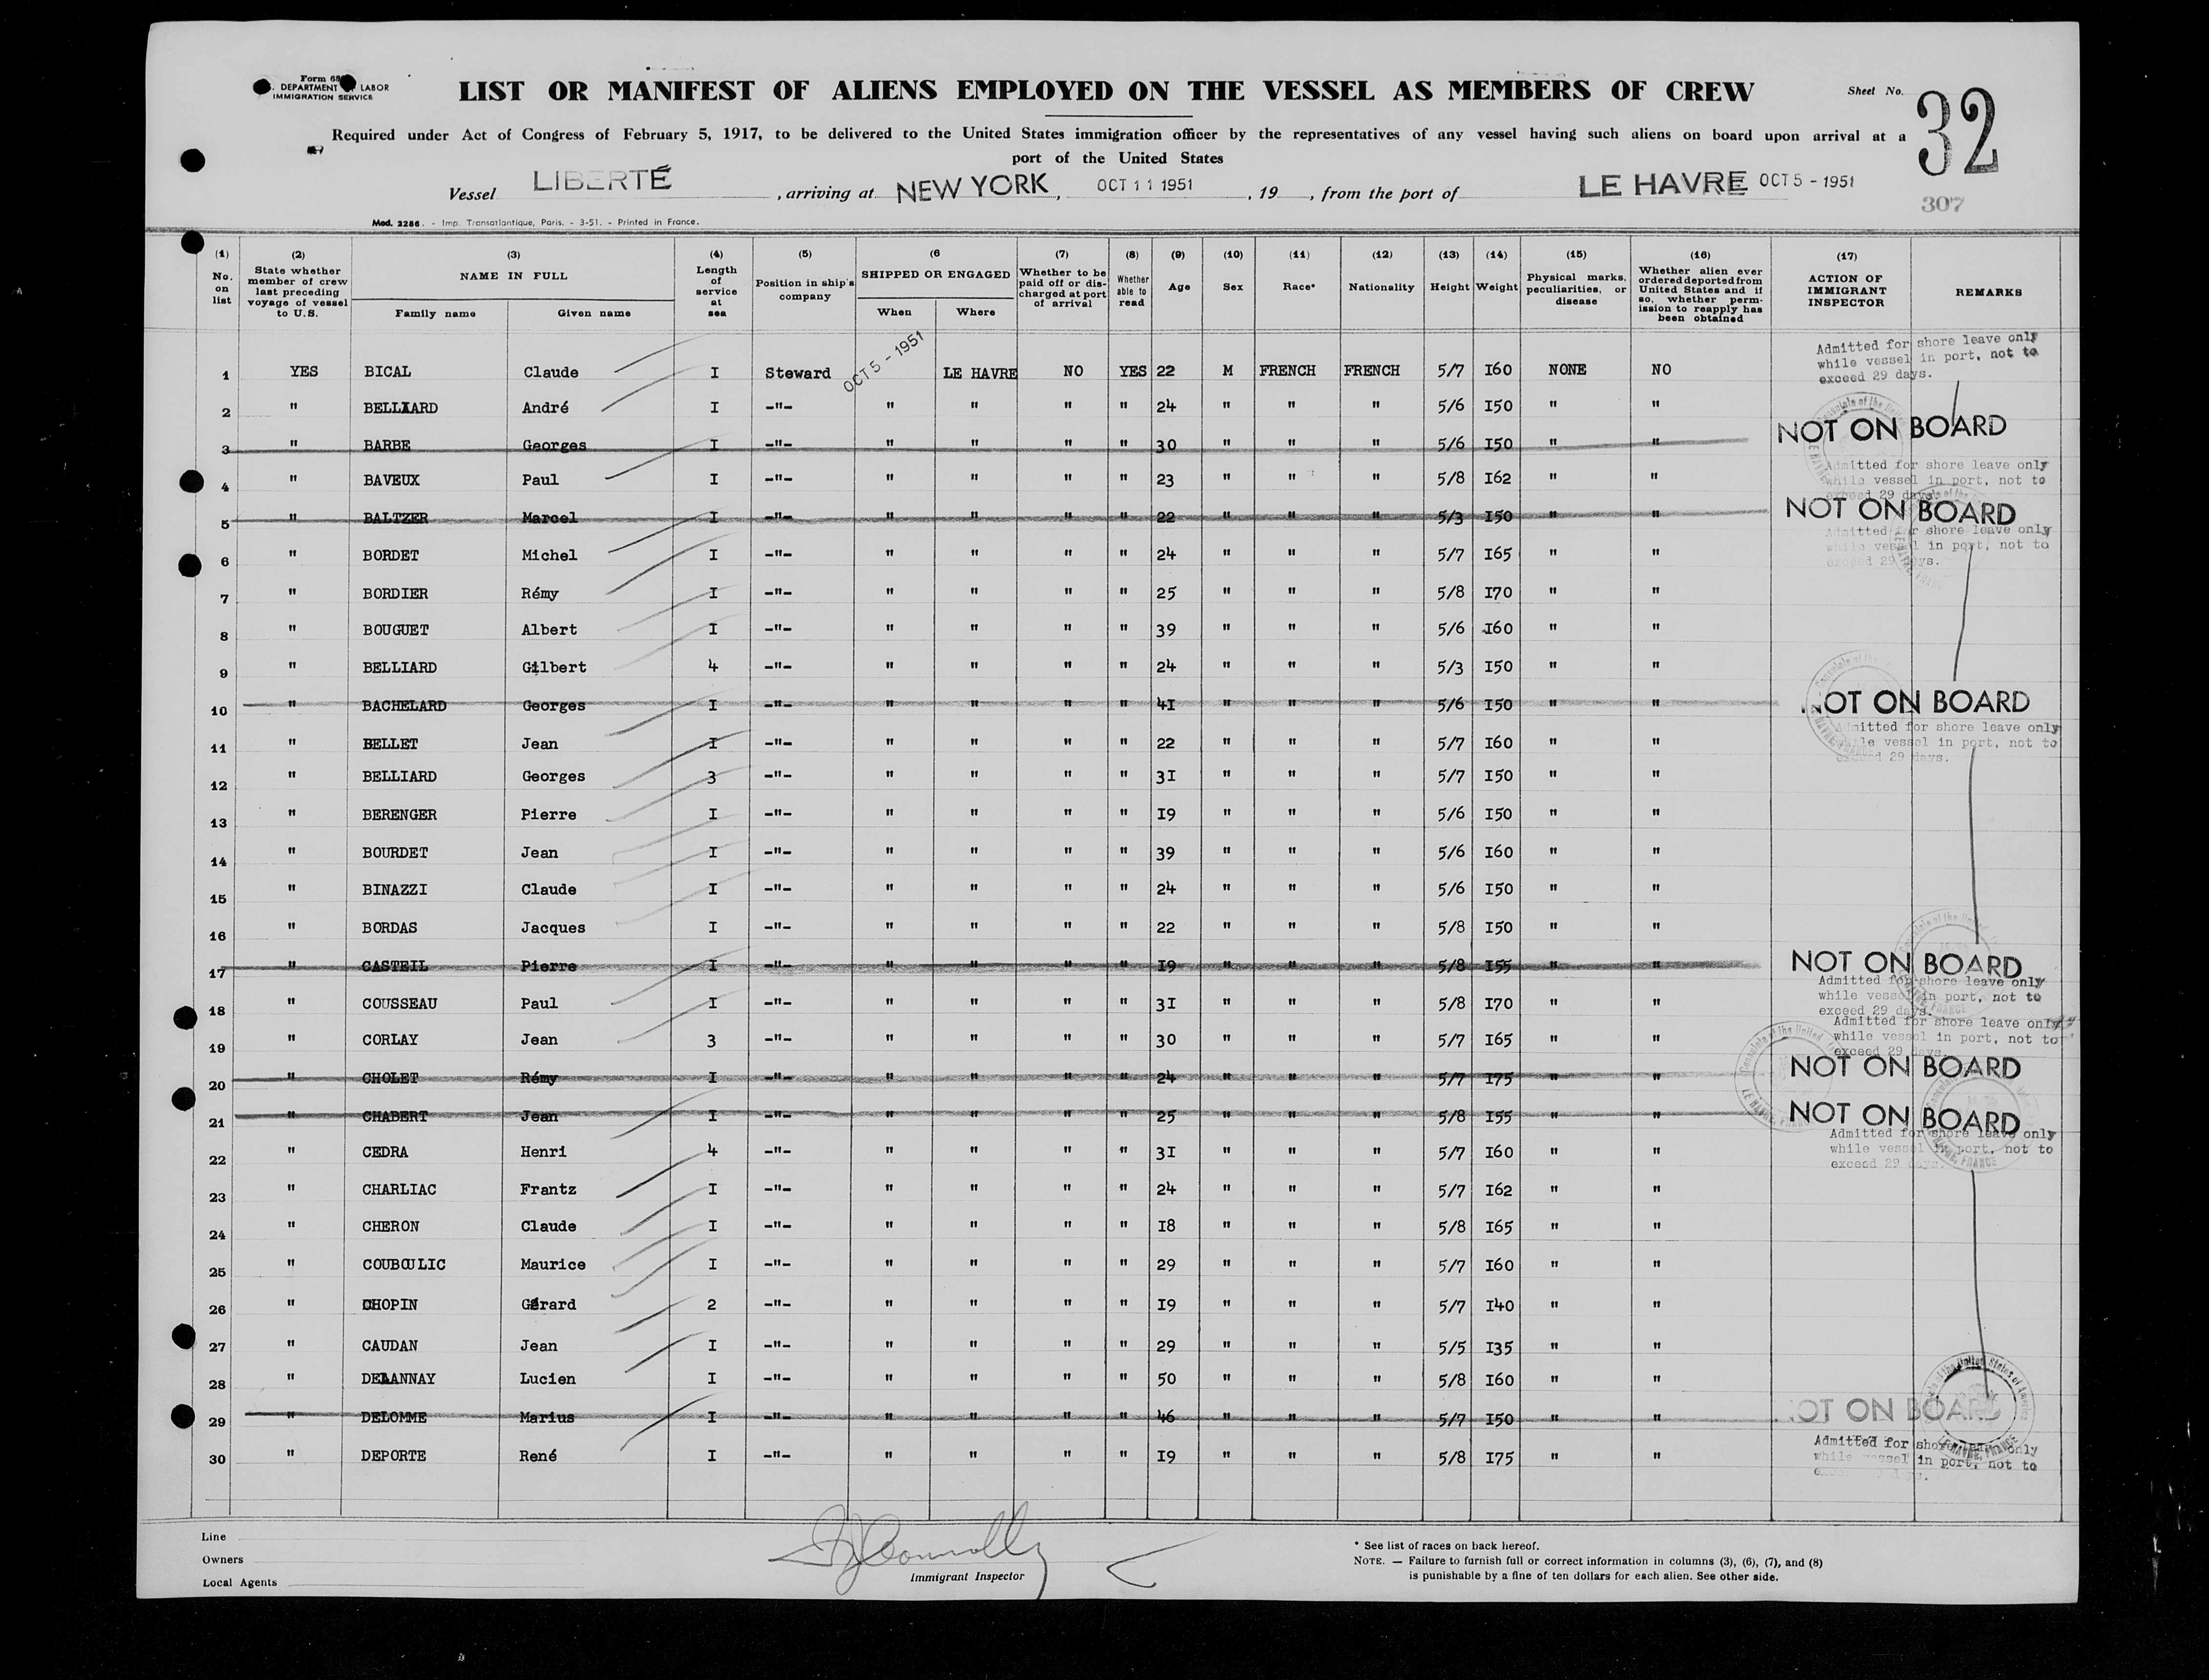 Form 68
DEPARTMENT LABOR
IMMIGRATION SERVICE
LIST OR MANIFEST OF ALIENS EMPLOYED ON THE VESSEL AS MEMBERS OF CREW
Sheet No. 32
Required under Act of Congress of February 5, 1917, to be delivered to the United States immigration officer by the representatives of any vessel having such aliens on board upon arrival at a
port of the United States
Vessel LIBERTÉ , arriving at NEW YORK , OCT 11 1951 , 19 , from the port of LE HAVRE OCT 5 - 1951
307
Mod. 2256. - Imp. Transatlantique, Paris. - 3-51. - Printed in France.
(1) No. on list
(2) State whether member of crew last preceding voyage of vessel to U.S.
(3) NAME IN FULL Family name Given name
(4) Length of service at sea
(5) Position in ship's company
(6 SHIPPED OR ENGAGED When Where
(7) Whether to be paid off or discharged at port of arrival
(8) Whether able to read
(9) Age
(10) Sex
(11) Race*
(12) Nationality
(13) Height
(14) Weight
(15) Physical marks, peculiarities, or disease
(16) Whether alien ever ordered deported from United States and if so, whether permission to reapply has been obtained
(17) ACTION OF IMMIGRANT INSPECTOR
REMARKS
1 YES BICAL Claude I Steward OCT 5 - 1951 LE HAVRE NO YES 22 M FRENCH FRENCH 5/7 I60 NONE NO Admitted for shore leave only while vessel in port, not to exceed 29 days.
2 " BELLIARD André I -"- " " " " 24 " " " 5/6 I50 " "
3 " BARBE Georges I -"- " " " " 30 " " " 5/6 I50 " " NOT ON BOARD
4 " BAVEUX Paul I -"- " " " " 23 " " " 5/8 I62 " " Admitted for shore leave only while vessel in port, not to exceed 29 days.
5 " BALTZER Marcel I -"- " " " " 22 " " " 5/3 I50 " " NOT ON BOARD
6 " BORDET Michel I -"- " " " " 24 " " " 5/7 I65 " " Admitted for shore leave only while vessel in port, not to exceed 29 days.
7 " BORDIER Rémy I -"- " " " " 25 " " " 5/8 I70 " "
8 " BOUGUET Albert I -"- " " " " 39 " " " 5/6 I60 " "
9 " BELLIARD Gilbert 4 -"- " " " " 24 " " " 5/3 I50 " "
10 " BACHELARD Georges I -"- " " " " 4I " " " 5/6 I50 " " NOT ON BOARD
11 " BELLET Jean I -"- " " " " 22 " " " 5/7 I60 " " Admitted for shore leave only while vessel in port, not to exceed 29 days.
12 " BELLIARD Georges 3 -"- " " " " 3I " " " 5/7 I50 " "
13 " BERENGER Pierre I -"- " " " " I9 " " " 5/6 I50 " "
14 " BOURDET Jean I -"- " " " " 39 " " " 5/6 I60 " "
15 " BINAZZI Claude I -"- " " " " 24 " " " 5/6 I50 " "
16 " BORDAS Jacques I -"- " " " " 22 " " " 5/8 I50 " "
17 " CASTEIL Pierre I -"- " " " " I9 " " " 5/8 I55 " " NOT ON BOARD
18 " COUSSEAU Paul I -"- " " " " 3I " " " 5/8 I70 " " Admitted for shore leave only while vessel in port, not to exceed 29 days.
19 " CORLAY Jean 3 -"- " " " " 30 " " " 5/7 I65 " " Admitted for shore leave only while vessel in port, not to exceed 29 days.
20 " CHOLET Rémy I -"- " " " " 24 " " " 5/7 I75 " " NOT ON BOARD
21 " CHABERT Jean I -"- " " " " 25 " " " 5/8 I55 " " NOT ON BOARD
22 " CEDRA Henri 4 -"- " " " " 3I " " " 5/7 I60 " " Admitted for shore leave only while vessel in port, not to exceed 29 days.
23 " CHARLIAC Frantz I -"- " " " " 24 " " " 5/7 I62 " "
24 " CHERON Claude I -"- " " " " I8 " " " 5/8 I65 " "
25 " COUBOULIC Maurice I -"- " " " " 29 " " " 5/7 I60 " "
26 " CHOPIN Gérard 2 -"- " " " " I9 " " " 5/7 I40 " "
27 " CAUDAN Jean I -"- " " " " 29 " " " 5/5 I35 " "
28 " DELANNAY Lucien I -"- " " " " 50 " " " 5/8 I60 " "
29 " DELOMME Marius I -"- " " " " 46 " " " 5/7 I50 " " NOT ON BOARD
30 " DEPORTE René I -"- " " " " I9 " " " 5/8 I75 " " Admitted for shore leave only while vessel in port, not to
Line
Owners
Local Agents
Connolly
Immigrant Inspector
* See list of races on back hereof.
NOTE. — Failure to furnish full or correct information in columns (3), (6), (7), and (8)
is punishable by a fine of ten dollars for each alien. See other side.